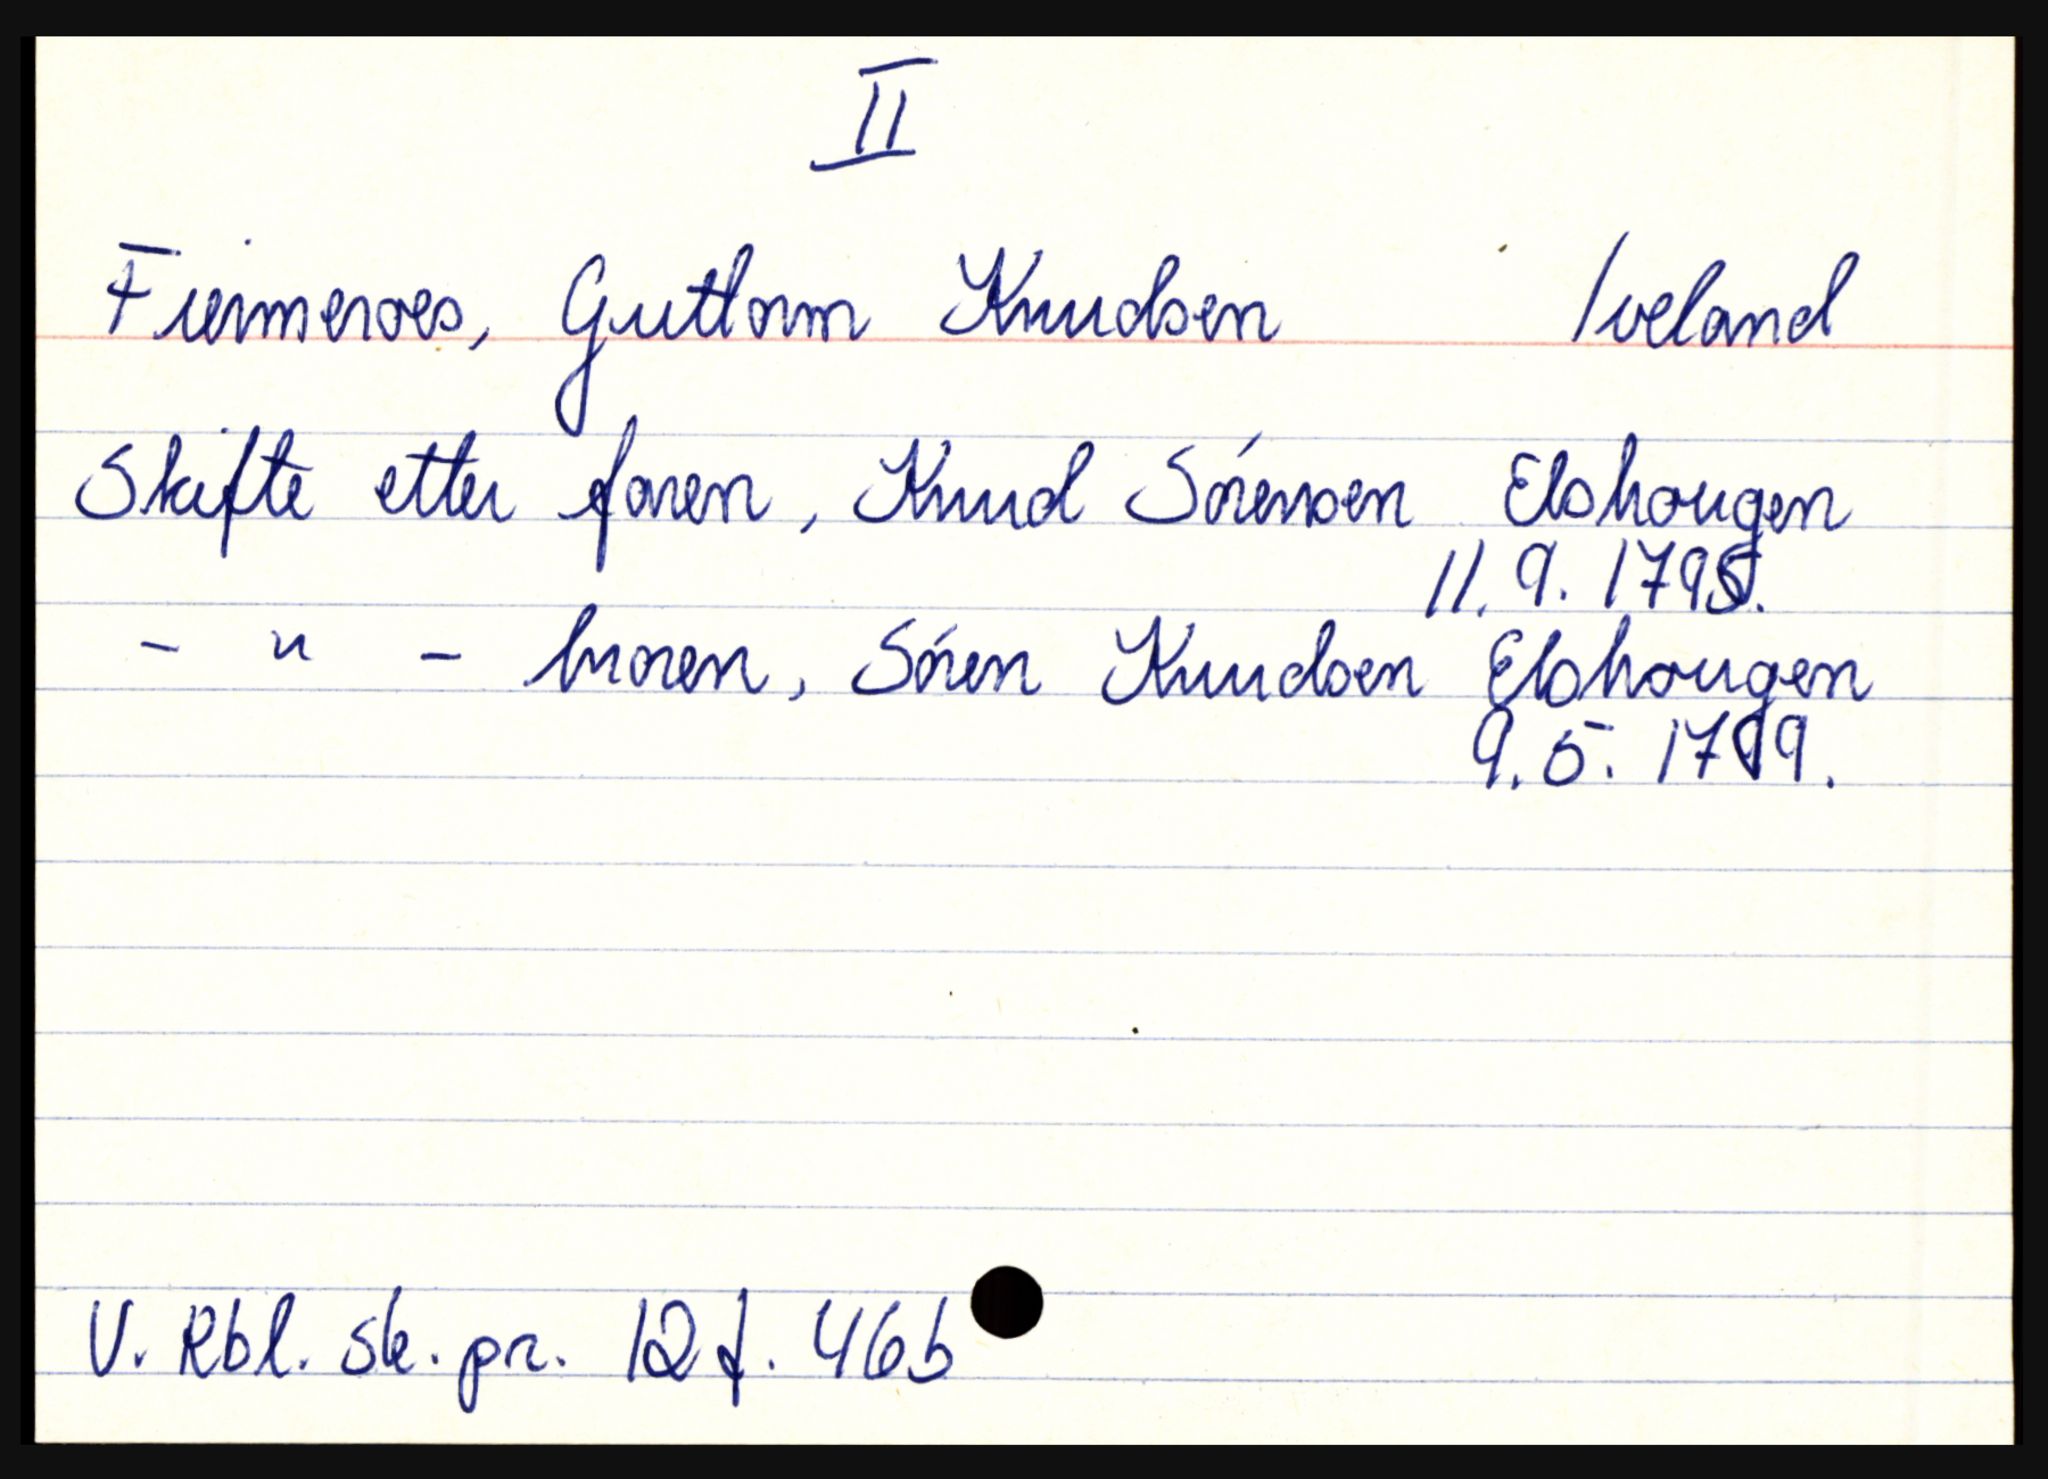 II
Fiermeroes, Guttorm Knudsen Iveland
Skifte etter faren, Knud Sórensen Elshougen
11.9.1795.
- " - broren, Sóren Knudsen Elshougen
9.5.1799.
V. Rbl. sk. pr. 12 f. 46b